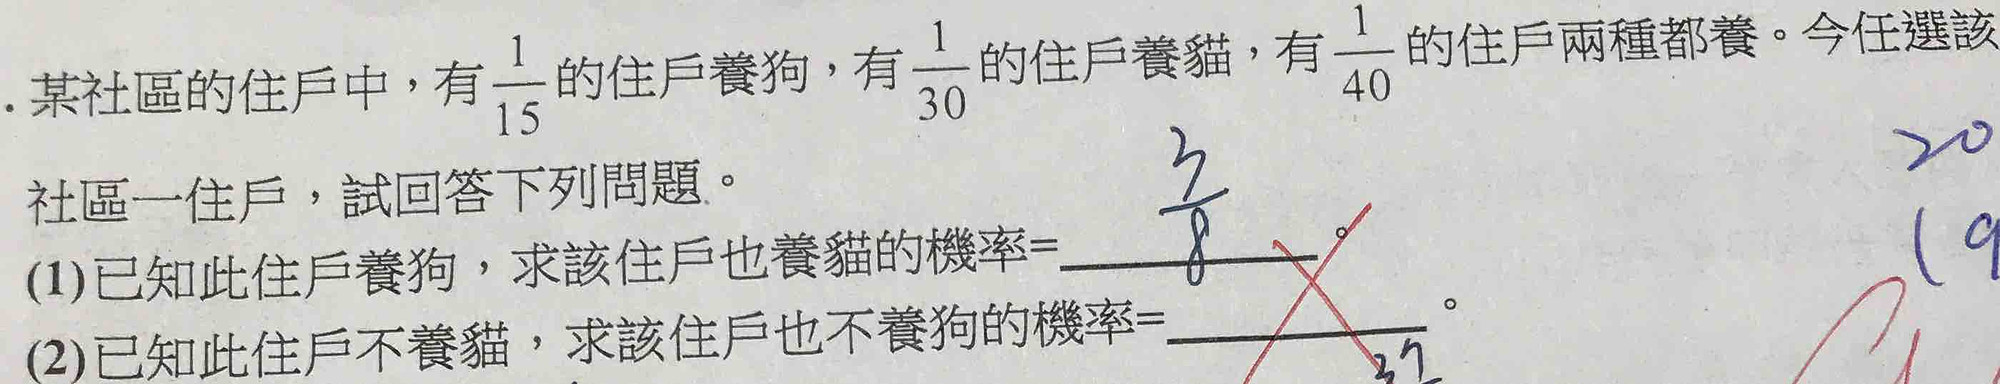 . 某社區的住戶中，有 1/15 的住戶養狗，有 1/30 的住戶養貓，有 1/40 的住戶兩種都養。今任選該
社區一住戶，試回答下列問題。
20
3/8
(1)已知此住戶養狗，求該住戶也養貓的機率=________。
19
(2)已知此住戶不養貓，求該住戶也不養狗的機率=________。
37